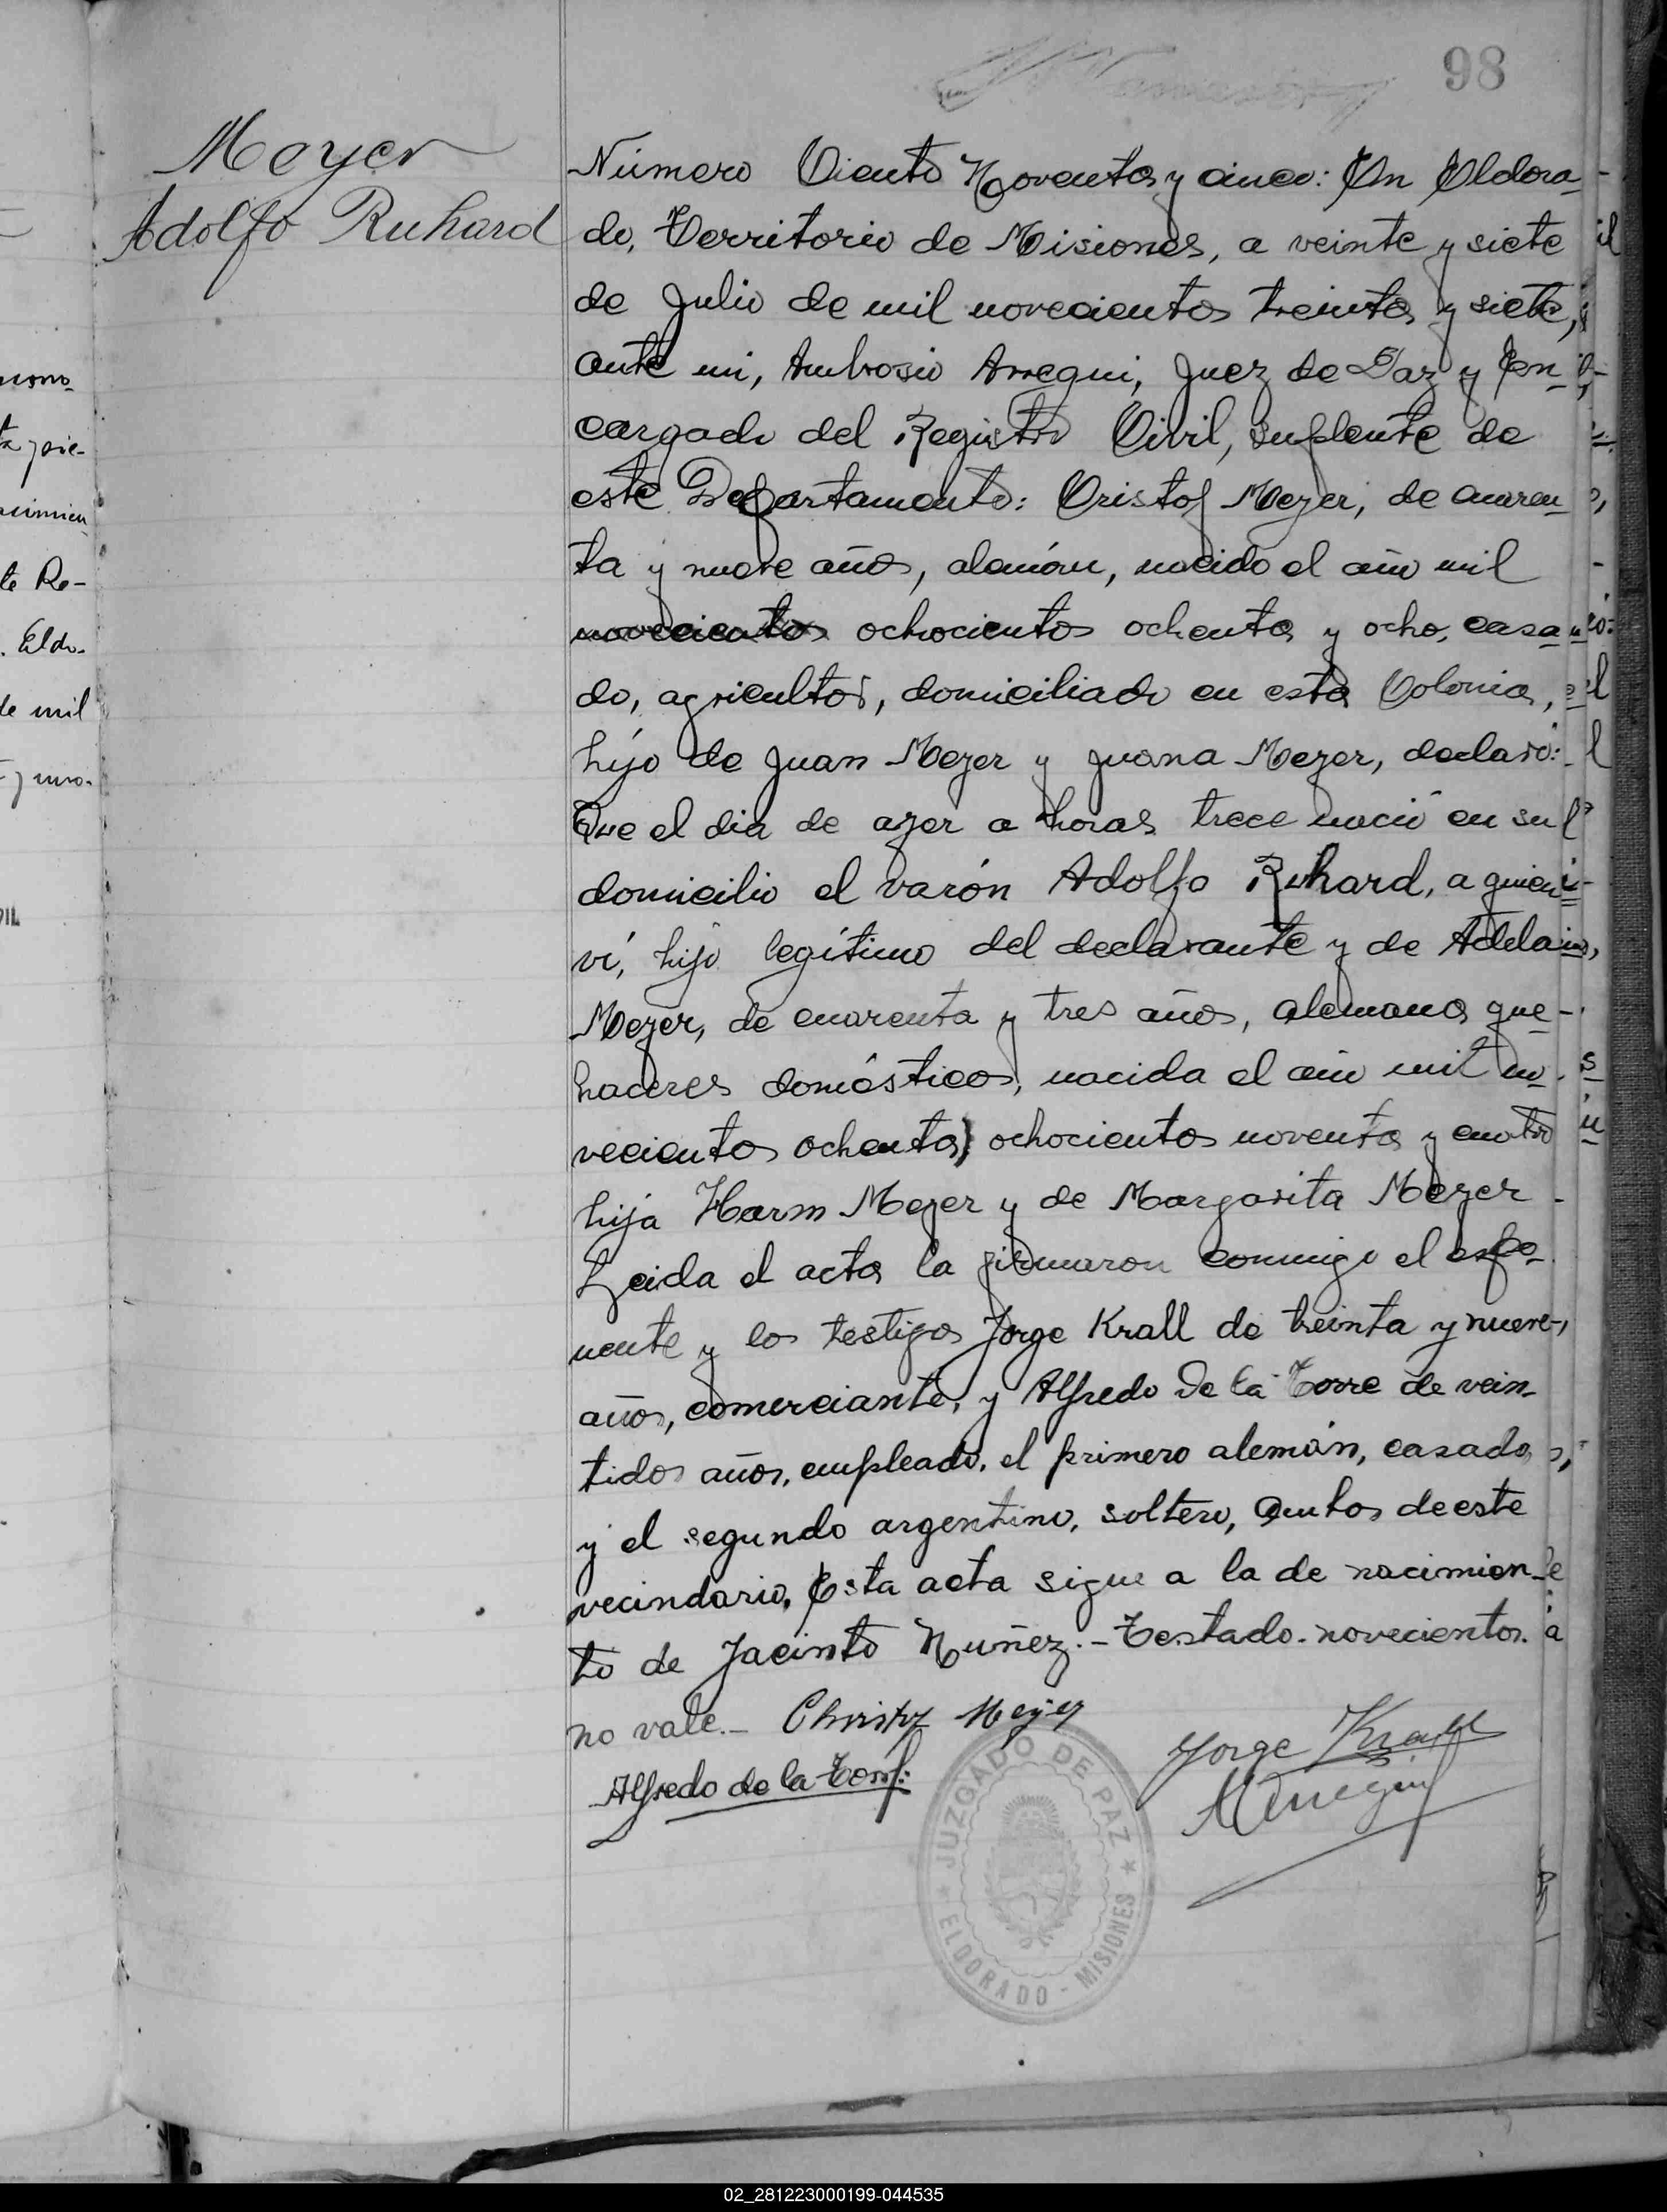 98
Meyer
Adolfo Ruhard
Número Ciento Noventa y cinco: En Eldora-
do, Territorio de Misiones, a veinte y siete
de Julio de mil novecientos treinta y siete,
ante mi, Ambrosio Arregui, Juez de Paz y En-
cargado del Registro Civil, Suplente de
este Departamento: Cristof Meyer, de cuaren-
ta y nueve años, alemán, nacido el año mil
novecientos ochocientos ochenta y ocho, casa-
do, agricultor, domiciliado en esta Colonia,
hijo de Juan Meyer y Juana Meyer, declaró:
Que el dia de ayer a horas trece nació en su
domicilio el varón Adolfo Ruhard, a quien
ví, hijo legítimo del declarante y de Adela
Meyer, de cuarenta y tres años, alemana, que-
haceres domésticos, nacida el año mil no-
vecientos ochenta) ochocientos noventa y cuatro
hija Harm Meyer y de Margarita Meyer
Leida el acta la firmaron conmigo el expo-
nente y los testigos Jorge Krall de treinta y nueve
años, comerciante, y Alfredo De la Torre de vein-
tidos años, empleado, el primero alemán, casado,
y el segundo argentino, soltero, ambos de este
vecindario. Esta acta sigue a la de nacimien-
to de Jacinto Nuñez.- Testado- novecientos.
no vale.- Christof Meyer
Jorge Krall
Alfredo de la Torre
AArregui
JUZGADO DE PAZ
ELDORADO - MISIONES
te Re-
. Eldo-
de mil
02_281223000199-044535